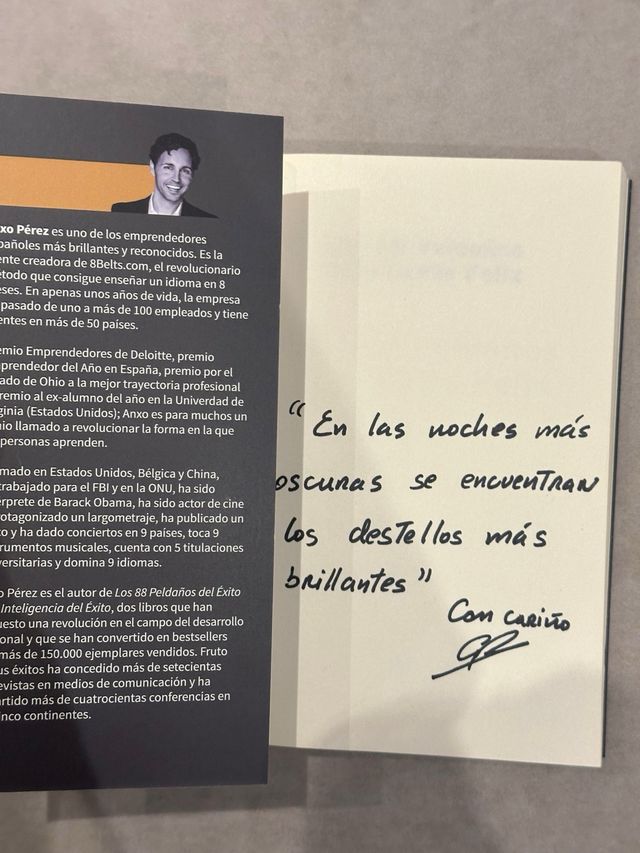 xo Pérez es uno de los emprendedores
pañoles más brillantes y reconocidos. Es la
ente creadora de 8Belts.com, el revolucionario
étodo que consigue enseñar un idioma en 8
eses. En apenas unos años de vida, la empresa
pasado de uno a más de 100 empleados y tiene
entes en más de 50 países.
emio Emprendedores de Deloitte, premio
prendedor del Año en España, premio por el
ado de Ohio a la mejor trayectoria profesional
remio al ex-alumno del año en la Univerdad de
ginia (Estados Unidos); Anxo es para muchos un
nio llamado a revolucionar la forma en la que
personas aprenden.
rmado en Estados Unidos, Bélgica y China,
trabajado para el FBI y en la ONU, ha sido
érprete de Barack Obama, ha sido actor de cine
rotagonizado un largometraje, ha publicado un
co y ha dado conciertos en 9 países, toca 9
trumentos musicales, cuenta con 5 titulaciones
versitarias y domina 9 idiomas.
o Pérez es el autor de Los 88 Peldaños del Éxito
Inteligencia del Éxito, dos libros que han
uesto una revolución en el campo del desarrollo
onal y que se han convertido en bestsellers
más de 150.000 ejemplares vendidos. Fruto
us éxitos ha concedido más de setecientas
evistas en medios de comunicación y ha
artido más de cuatrocientas conferencias en
inco continentes.
"En las noches más
oscuras se encuentran
los destellos más
brillantes"
Con cariño